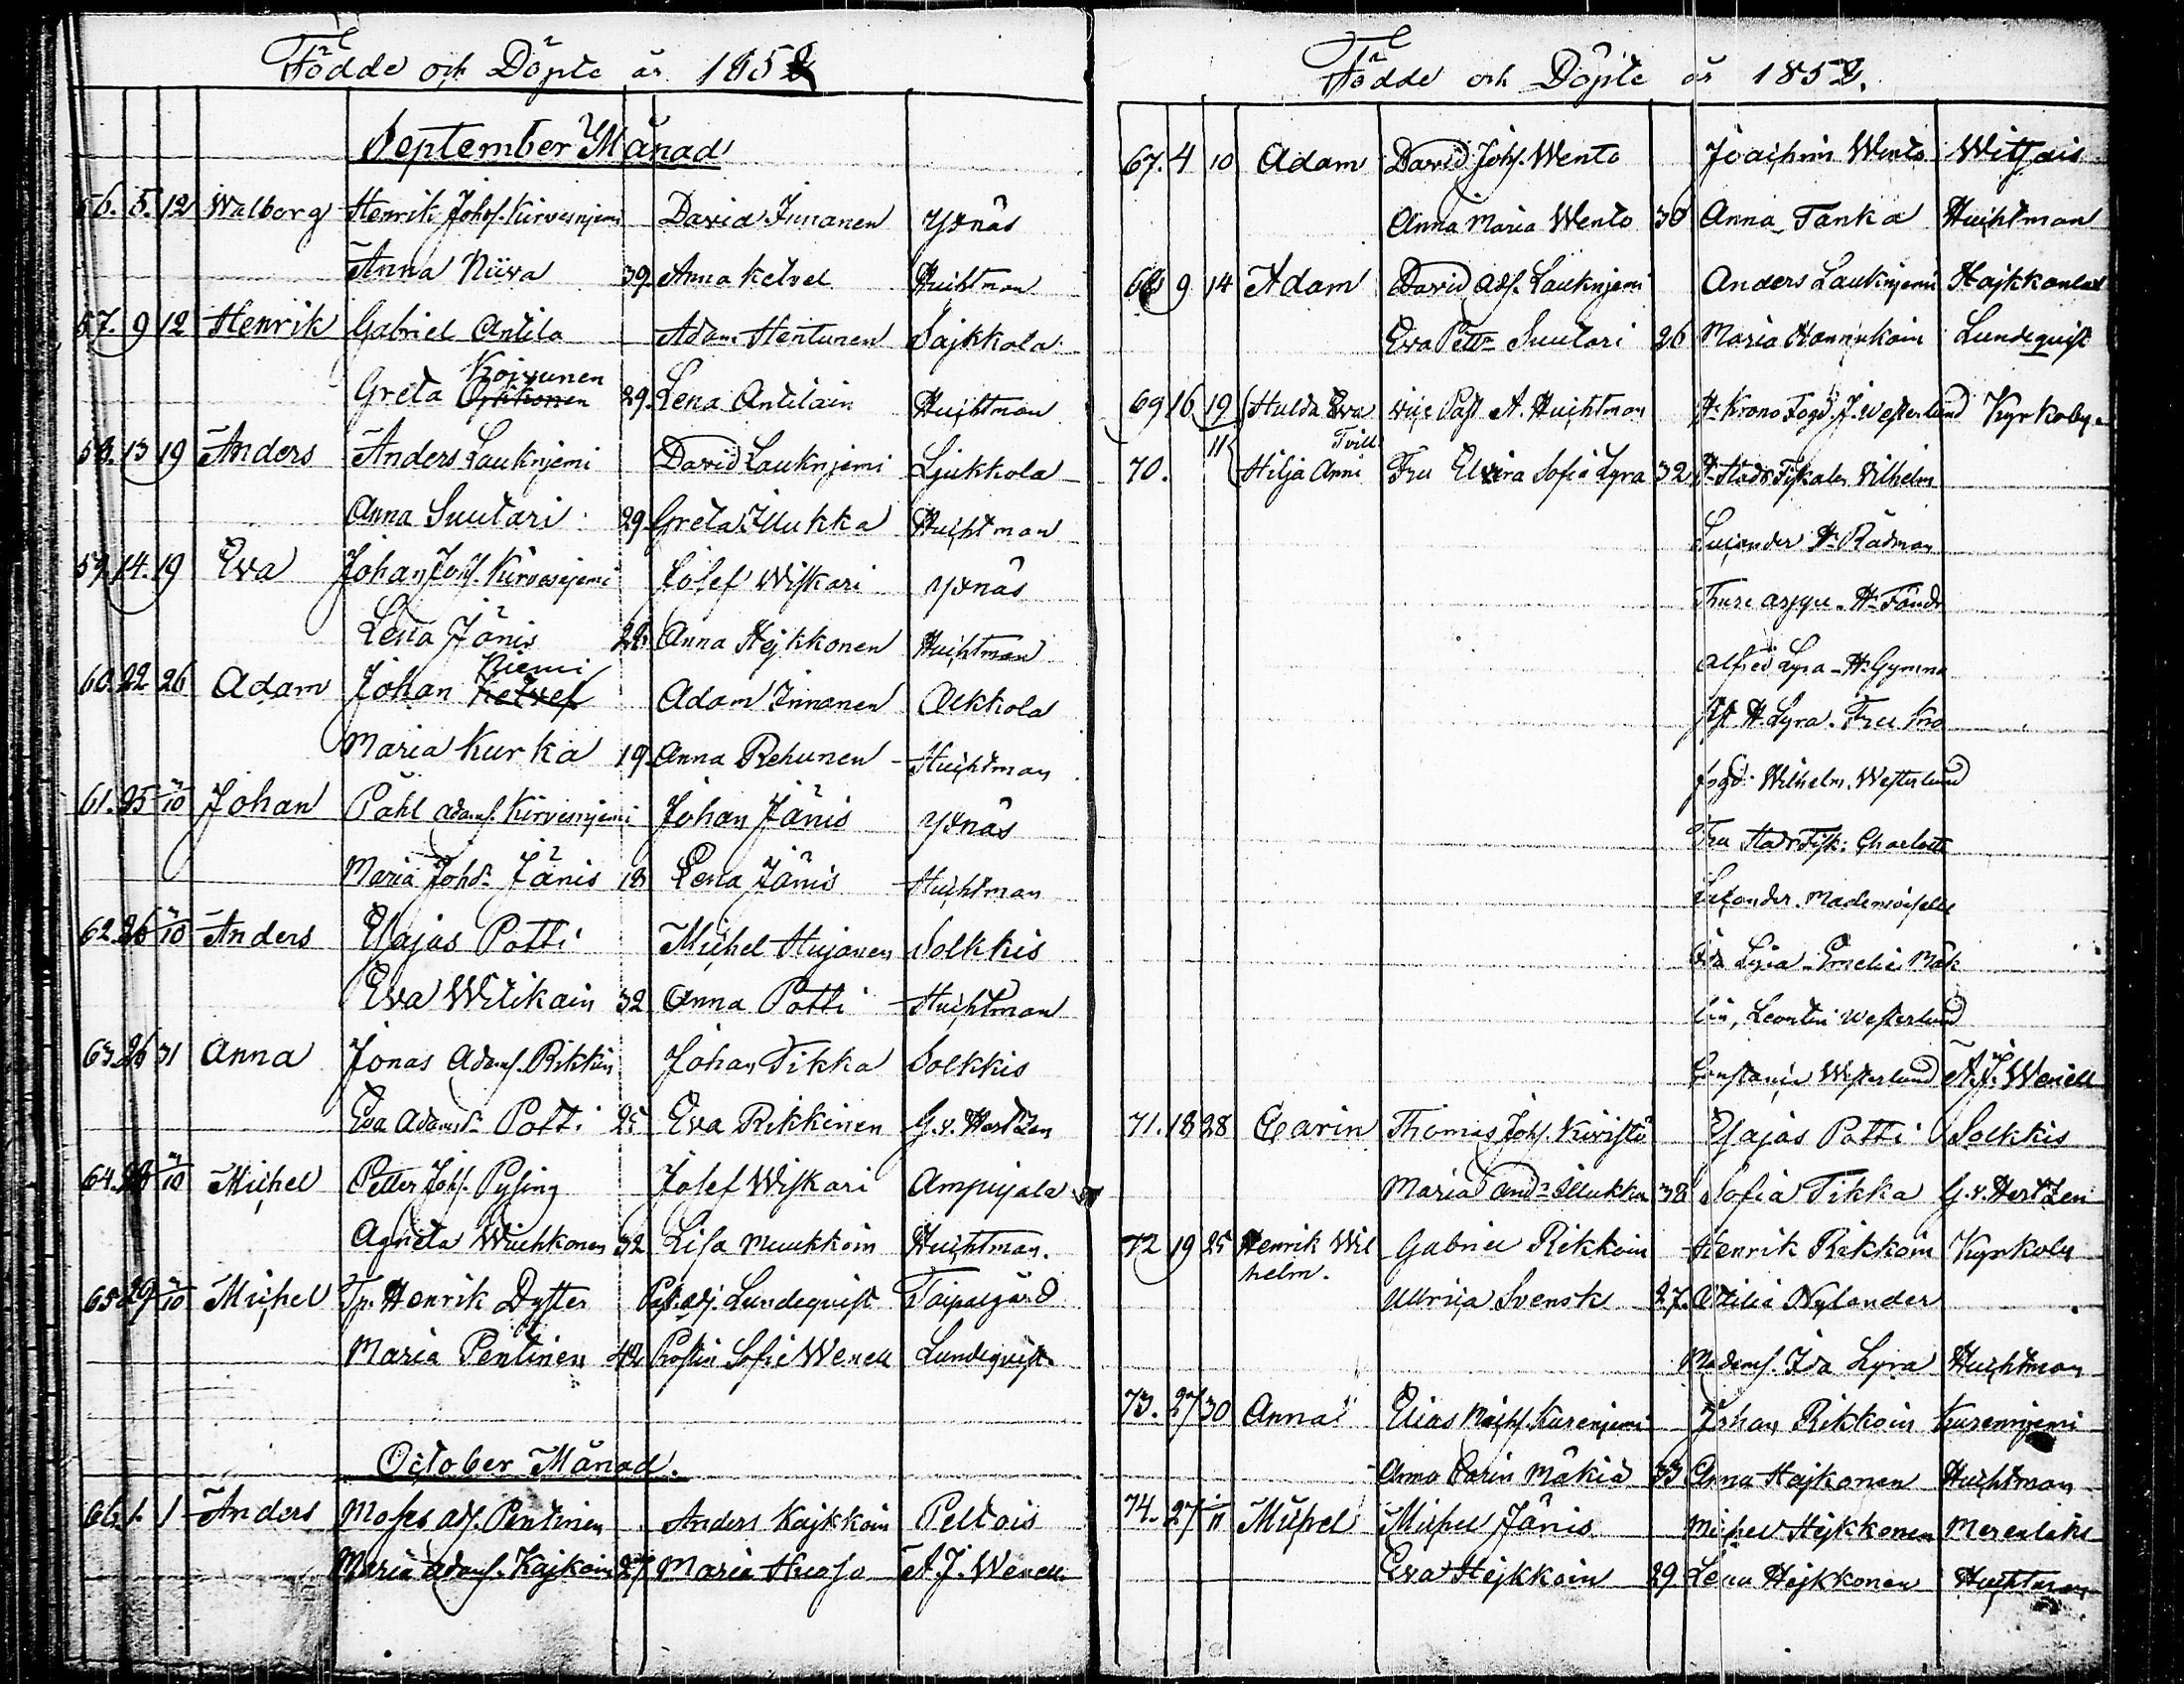 Födde och Döpte år 1852
September Månad
56. 5. 12 Walborg Henrik Johs. Kirvesnjemi David Innanen Yxnäs
Anna Niiva 39. Anna Ketvel Huichtman
57. 9 12 Henrik Gabriel Antila Adam Hentunen Sajkkola
Koivunen
Greta 29. Lena Antilain Huichtman
58. 13 19 Anders Anders Lauknjemi David Lauknjemi Ljukkola
Anna Suutari 29. Greta Illukka Huichtman
59. 14. 19 Eva Johan Johs. Kirvesnjemi Josef Wiskari Yxnäs
Lena Jänis 28. Anna Hejkkonen Huichtman
Niemi
60. 22 26 Adam Johan Ketvel Adam Innanen Alkkola
Maria Kurka 19. Anna Rehunen Huichtman
61. 25 3/10 Johan Påhl Adams. Kirvesnjemi Johan Jänis Yxnäs
Maria Johsdr. Jänis 18 Lena Jänis Huichtman
62. 26 3/10 Anders Esajas Potti Michel Hujanen Solkkis
Eva Witikain 32 Anna Potti Huichtman
63. 26 31 Anna Jonas Adams. Rikkin Johan Tikka Solkkis
Eva Adamsdr. Potti 25 Eva Rikkinen G. v. Hertzen
64. 28 3/10 Michel Petter Johs. Pysing Josef Wiskari Ampujala
Agneta Wiichkonen 32 Lisa Muukkoin Huichtman.
65 29 3/10 Michel Tp. Henrik Dyster Past. adj. Lundequist Taipalgård
Maria Pentinen 42 Prostin Sofie Wenell Lundequist
October Månad.
66. 1. 1 Anders Moses Ads. Pentinen Anders Kajkkoin Peltois
Maria Adams. Kajkoin 27 Maria Huoso A. J. Wenell
Födde och Döpte år 1852.
67. 4 10 Adam David Johs. Wento Joachim Wento Witsais
Anna Maria Wento 30 Anna Tanka Huichtman
68 9 14 Adam David Ads. Lauknjemi Anders Lauknjemi Hajkkanlax
Eva Pettr. Suutari 26 Maria Hannukain Lundequist
69 16 19 Hulda Eva vice Past A. Huichtman Hr. Krono Fogd. J. Westerlund Kyrkoby
Tvill
70. 11 Hilja Anni Fru Elvira Sofia Lyra 32 Hr. Stads Fiskalen Vilhelm
Hr. Rådman
Thure Hr. Fändr
Alfred Lyra - Hr. Gymna
sist H. Lyra. Fru Kro
fogd: Wilhelm. Westerlund
Fru Stads Fisk: Charlotte
Mademoiselle
Ida Lyra - Emelie Mäk
lin, Leontin Westerlund
Constance Westerlund A. J. Wenell
71. 18 28 Carin Thomas Johs. Kivistö Esajas Potti Solkkis
Maria Andr. Illukka 32 Sofia Tikka G. v. Hertzen
72 19 25 Henrik Wil Gabriel Rikkoin Henrik Rikkoin Kyrkoby
helm. Ullrica Svensk 27. Otilia Nylander
Madems. Ida Lyra Huichtman
73. 27 30 Anna Elias Michs. Kurenjemi Johan Rikkoin Kurennjemi
Anna Carin Mäkiä 33 Anna Hajkonen Huichtman
74. 27 1/11 Michel Michel Jänis Michel Hejkkonen Merenlaks
Eva Hejkkoin 29. Lena Hejkkonen Huichtman